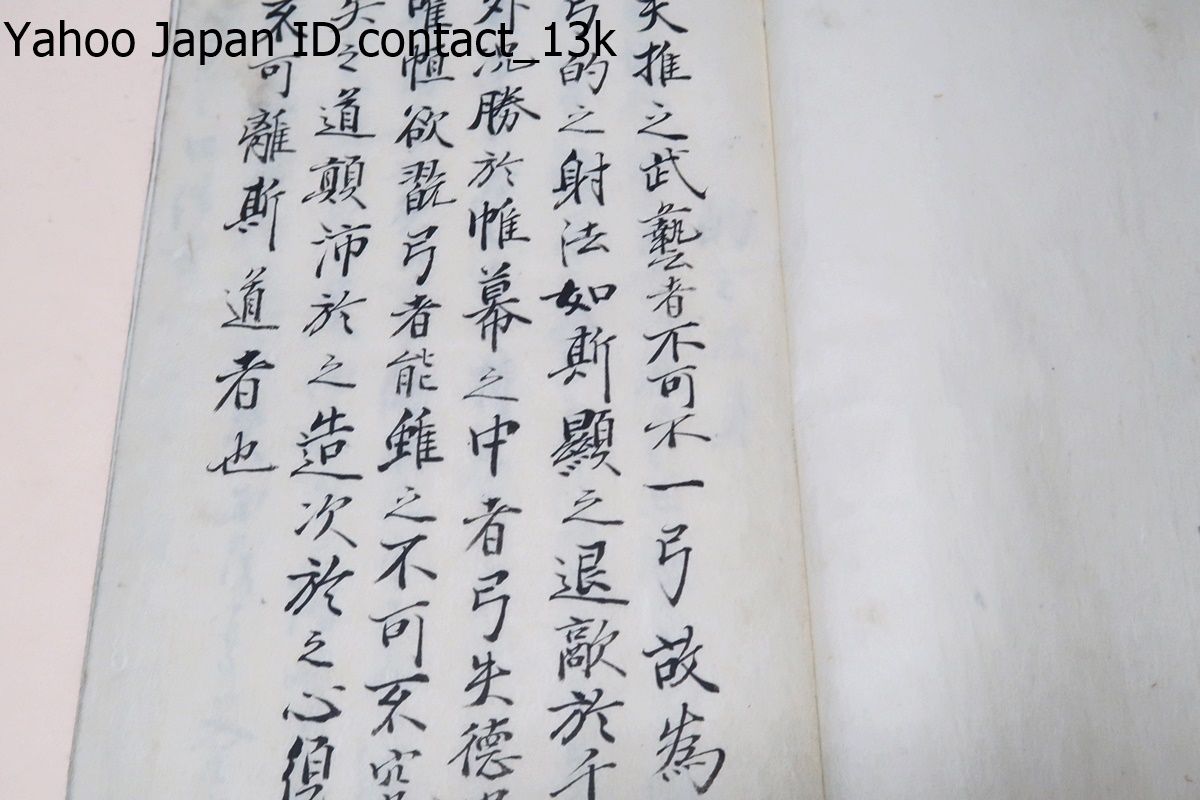 Yahoo Japan ID contact_13k
矢推之武藝者不可不一弓故為
弓的之射法如斯顯之退敵於千
外况勝於帷幕之中者弓矢德
唯恒欲翫弓者能雖之不可不究
矢之道顛沛於之造次於之心須
不可離斯道者也